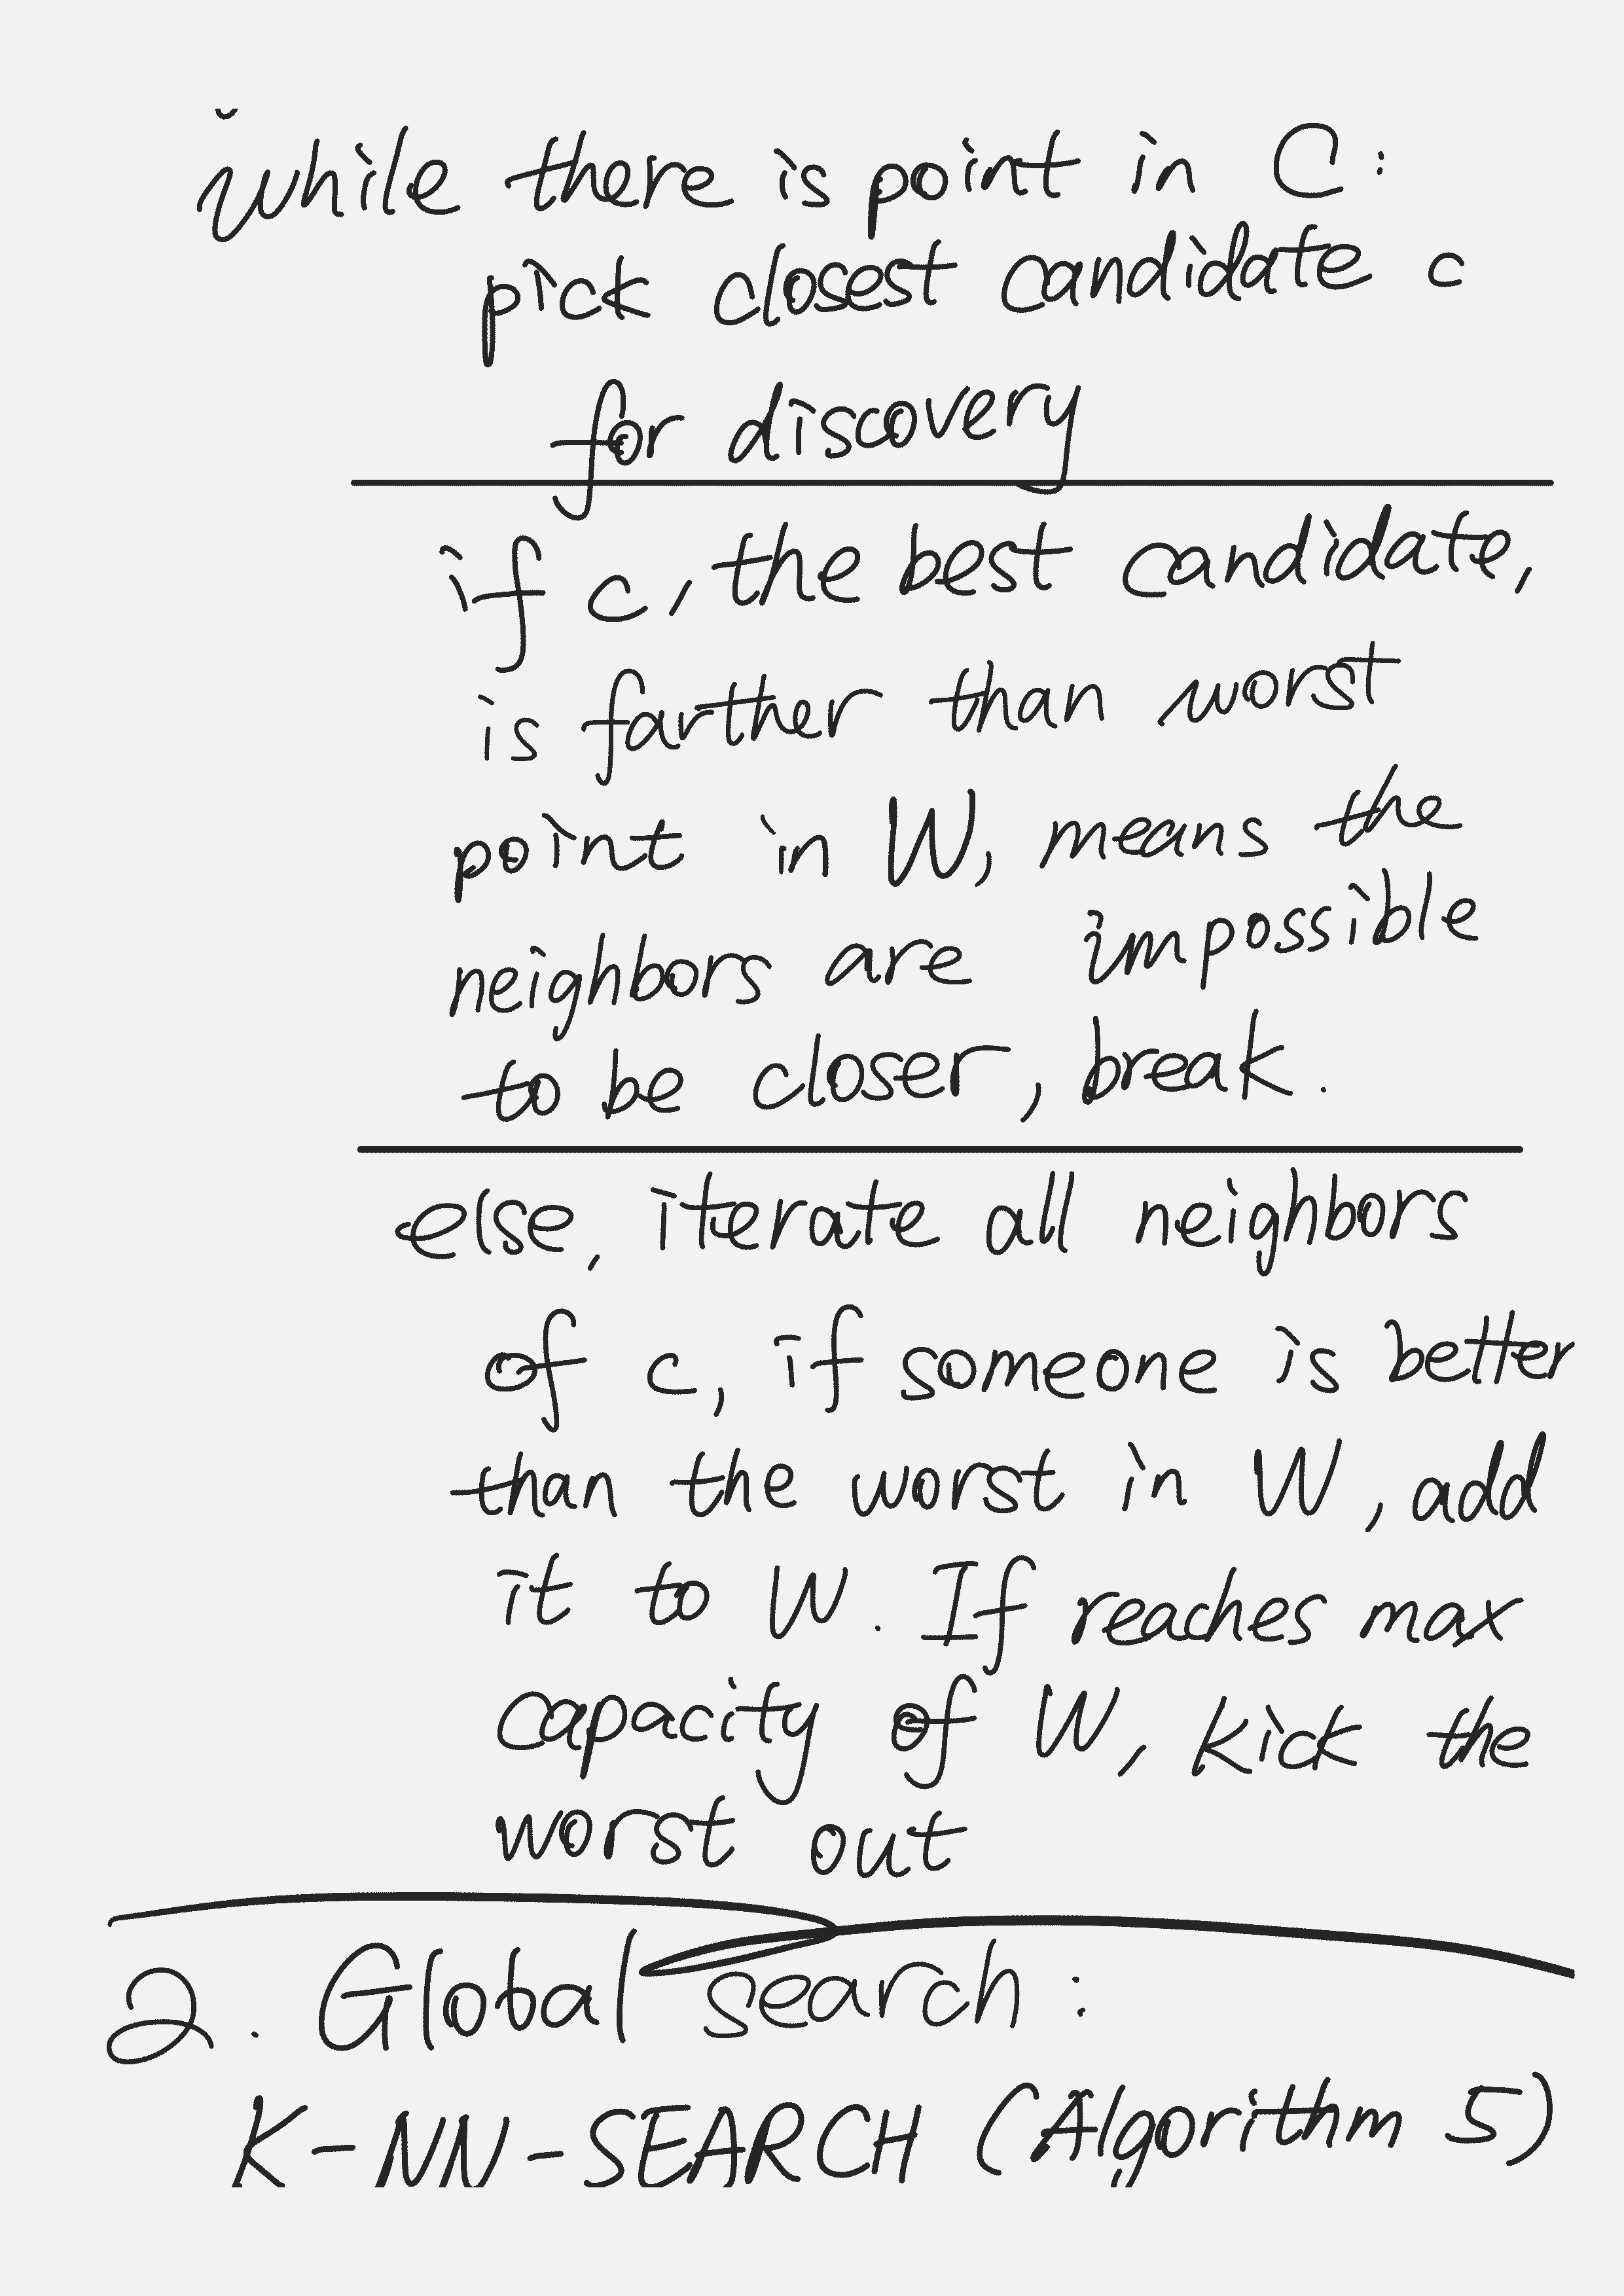 while there is point in C:
pick closest candidate c
for discovery
if c, the best candidate,
is farther than worst
point in W, means the
neighbors are impossible
to be closer, break.
else, iterate all neighbors
of c, if someone is better
than the worst in W, add
it to W. If reaches max
capacity of W, kick the
worst out
2. Global search:
K-NN-SEARCH (Algorithm 5)